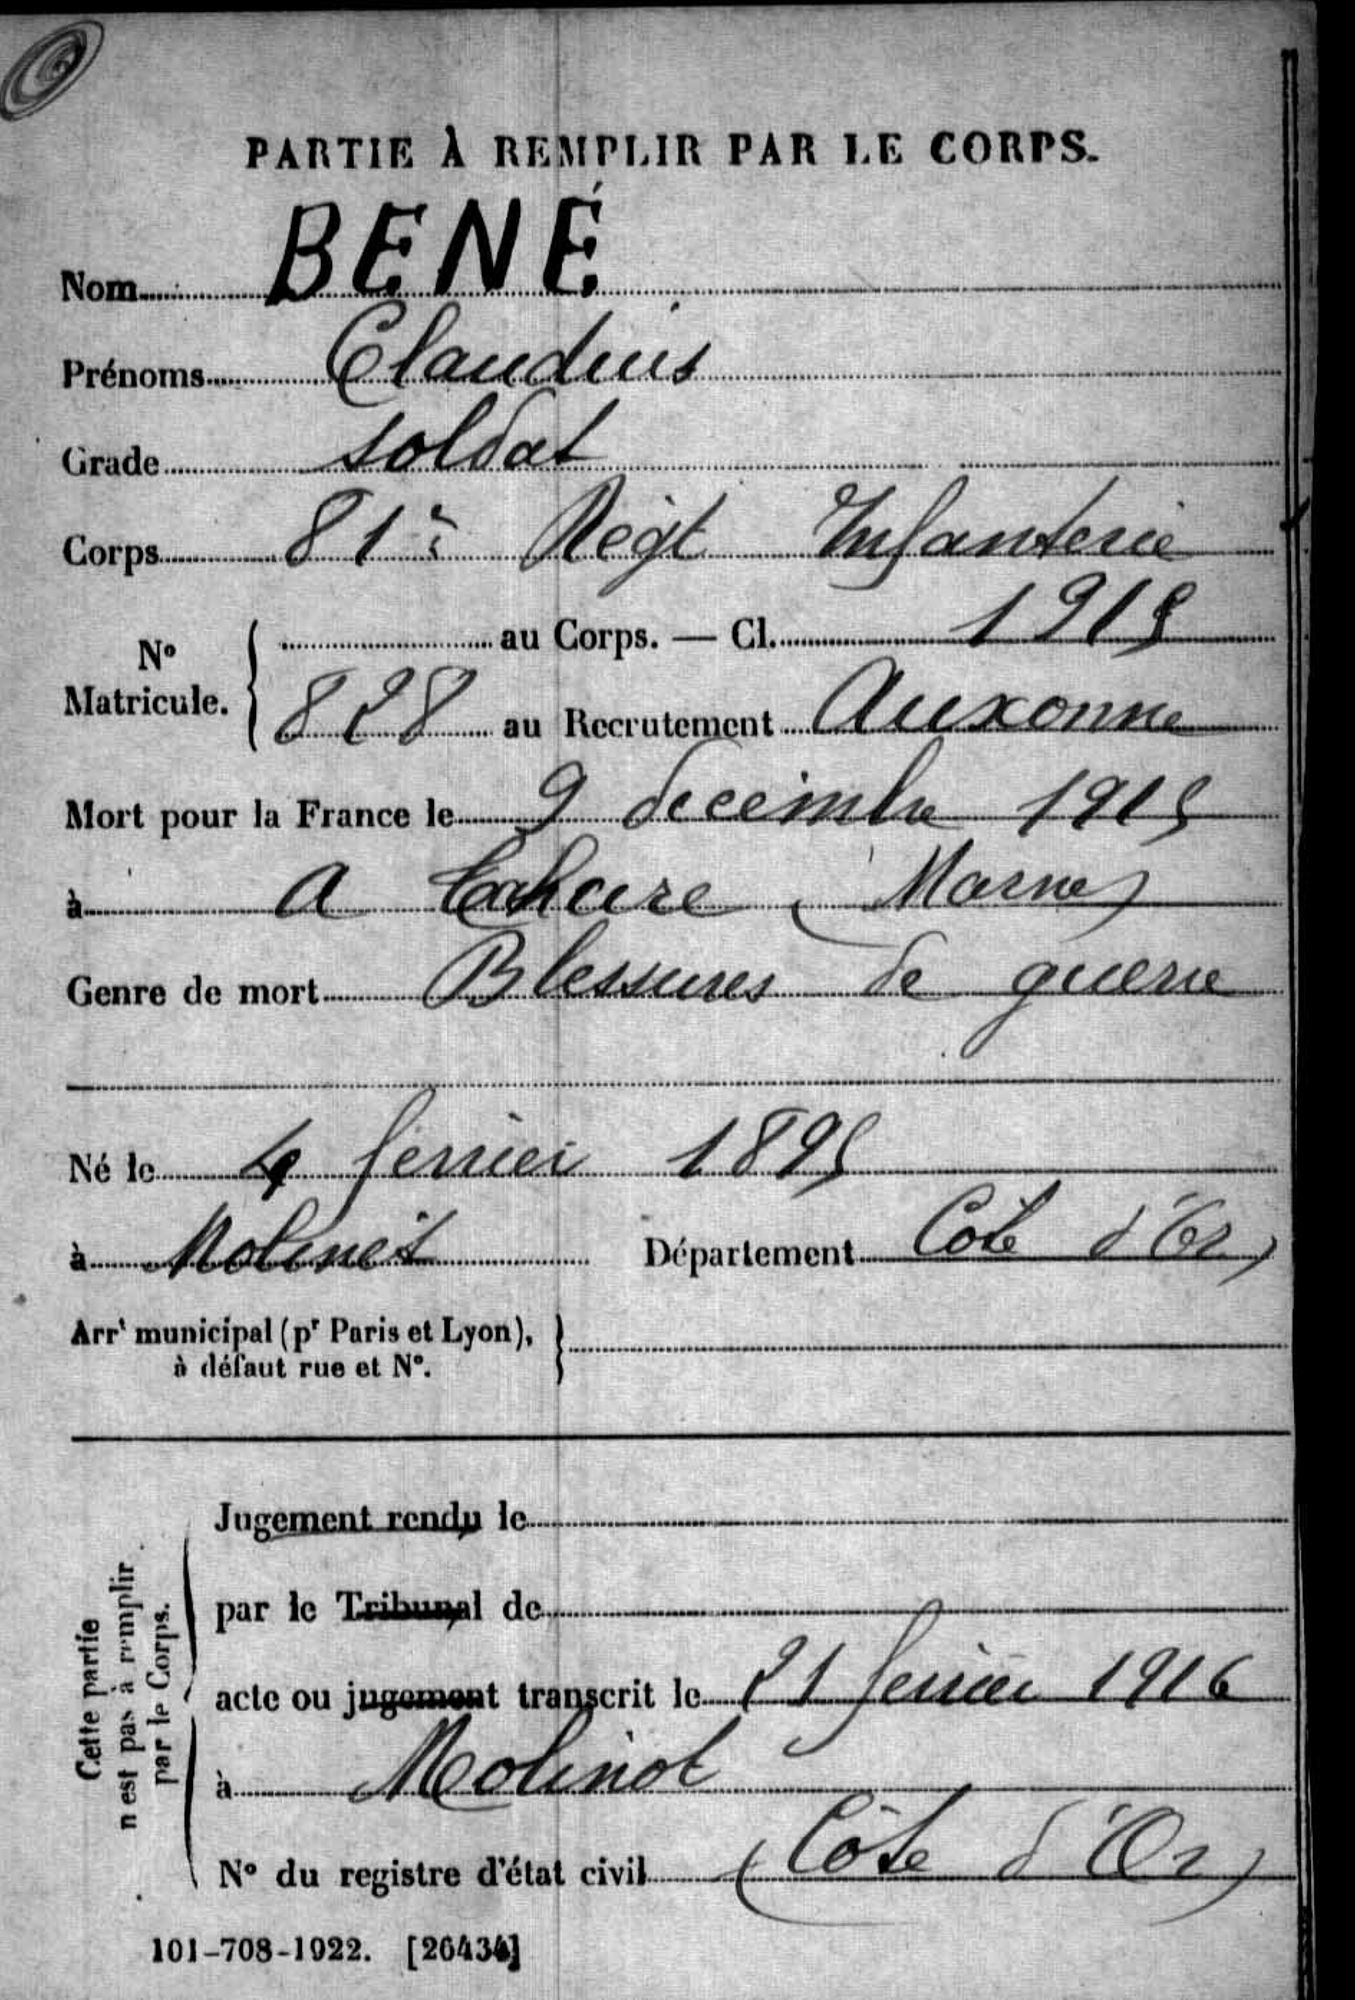 PARTIE À REMPLIR PAR LE CORPS.
Nom BENÉ
Prénoms Claudius
Grade soldat
Corps 81e Régt Infanterie
N° Matricule. au Corps. — Cl. 1915
828 au Recrutement Auxonne
Mort pour la France le 9 decembre 1915
à a Tahure (Marne)
Genre de mort Blessures de guerre
Né le 4 fevrier 1895
à Molinot Département Côte d'Or)
Arrt municipal (pr Paris et Lyon),
à défaut rue et N°.
Cette partie
n'est pas à remplir
par le Corps.
Jugement rendu le
par le Tribunal de
acte ou jugement transcrit le 21 fevrier 1916
à Molinot
N° du registre d'état civil (Côte d'Or)
101-708-1922. [26434]